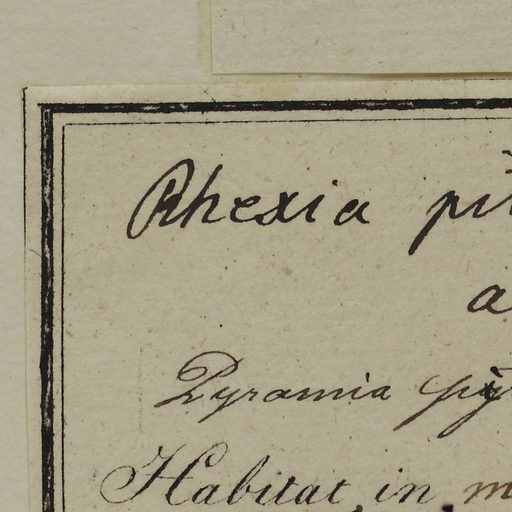 Rhexia
a
Pyramia
Habitat in